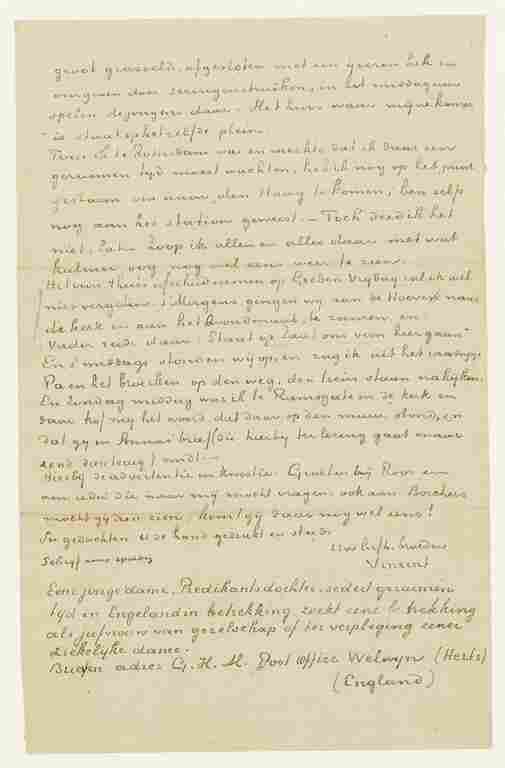 groot grasveld, afgesloten met een ijzeren hek en
omgeven door seringenstruiken, in het middaguur
spelen de jongens daar. Het huis waar mijne kamer
is staat op hetzelfde plein.
Toen ik te Rotterdam was en merkte dat ik daar een
geruimen tijd moest wachten, heb ik nog op het punt
gestaan om naar den Haag te komen, ben zelfs
nog aan het station geweest. — Toch deed ik het
niet, later hoop ik allen en alles daar met wat
kalmer oog nog wel eens weer te zien.
Het van Thuis afscheidnemen op Goeden Vrijdag zal ik niet
vergeten. 's Morgens gingen wij aan de Hoeven naar
de kerk en aan het Avondmaal, te zamen, en
Vader zeide daar: Staat op laat ons van hier gaan
En 's middags stonden wij op, en zag ik uit het raampje
Pa en het broertje op den weg, den trein staan nakijken.
En Zondag middag was ik te Ramsgate in de kerk en
daar hoorde het woord, dat daar op den muur stond, en
dat gij in Anna's brief (die hierbij ter lezing gaat maar
zend dan terug) vindt. —
Hierbij de advertentie in kwestie. Groeten bij Roos en
aan ieder die naar mij mocht vragen, ook aan Borchers
mocht gij dien zien, komt gij daar nog wel eens?
In gedachten U de hand gedrukt en steeds
Uw liefh. broeder
Vincent
Schrijf eens spoedig
Eene jonge dame, Predikants dochter, sedert geruimen
tijd in Engeland in betrekking zoekt eene betrekking
als juffrouw van gezelschap of ter verpleging eener
ziekelijke dame.
Brieven adres G. H. M. Post office Welwyn (Herts)
(England)